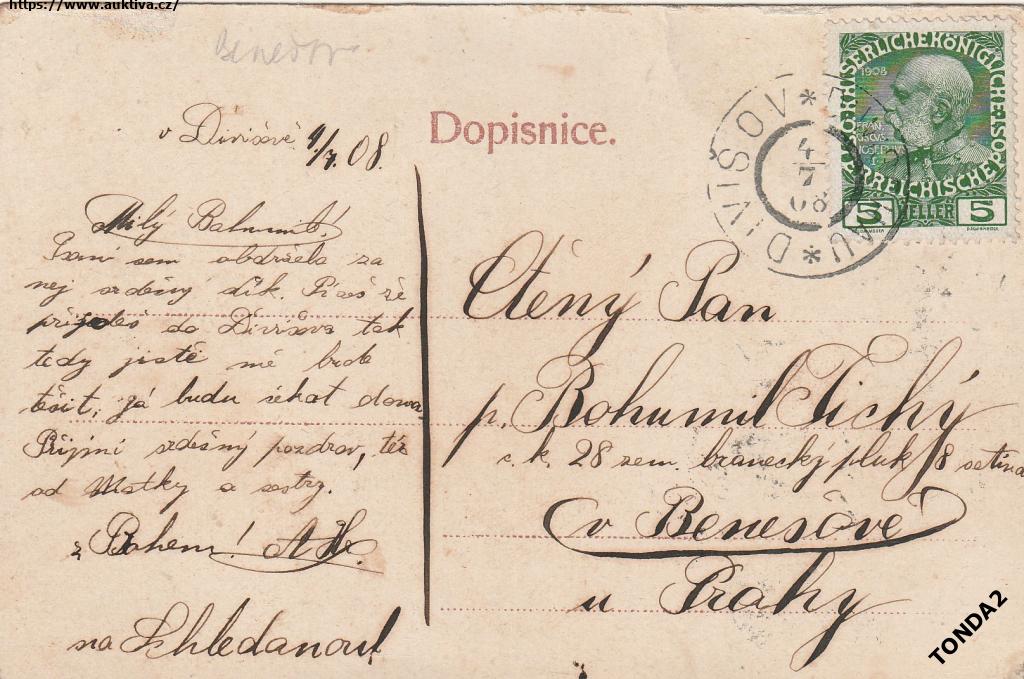 https://www.auktiva.cz/
Benešov
v Divišově 4/7 08.
Dopisnice.
Milý Bohumile!
sem obdržela za
nej srdečný dík. Píšeš že
přijedeš do Divišova tak
tedy jistě mě bude
těšit, já budu čekat doma
Přijmi srdečný pozdrav, též
od Matky a sestry.
s Bohem!
na Shledanou!
KAISERLICHE KÖNIGLICHE
ÖSTERREICHISCHE POST
1908
5 HELLER 5
DIVIŠOV
4
7
08
Ctěný Pan
p. Bohumil Tichý
c. k. 28 zem. branecký pluk 8 setina
v Benešově
u Prahy
TONDA2